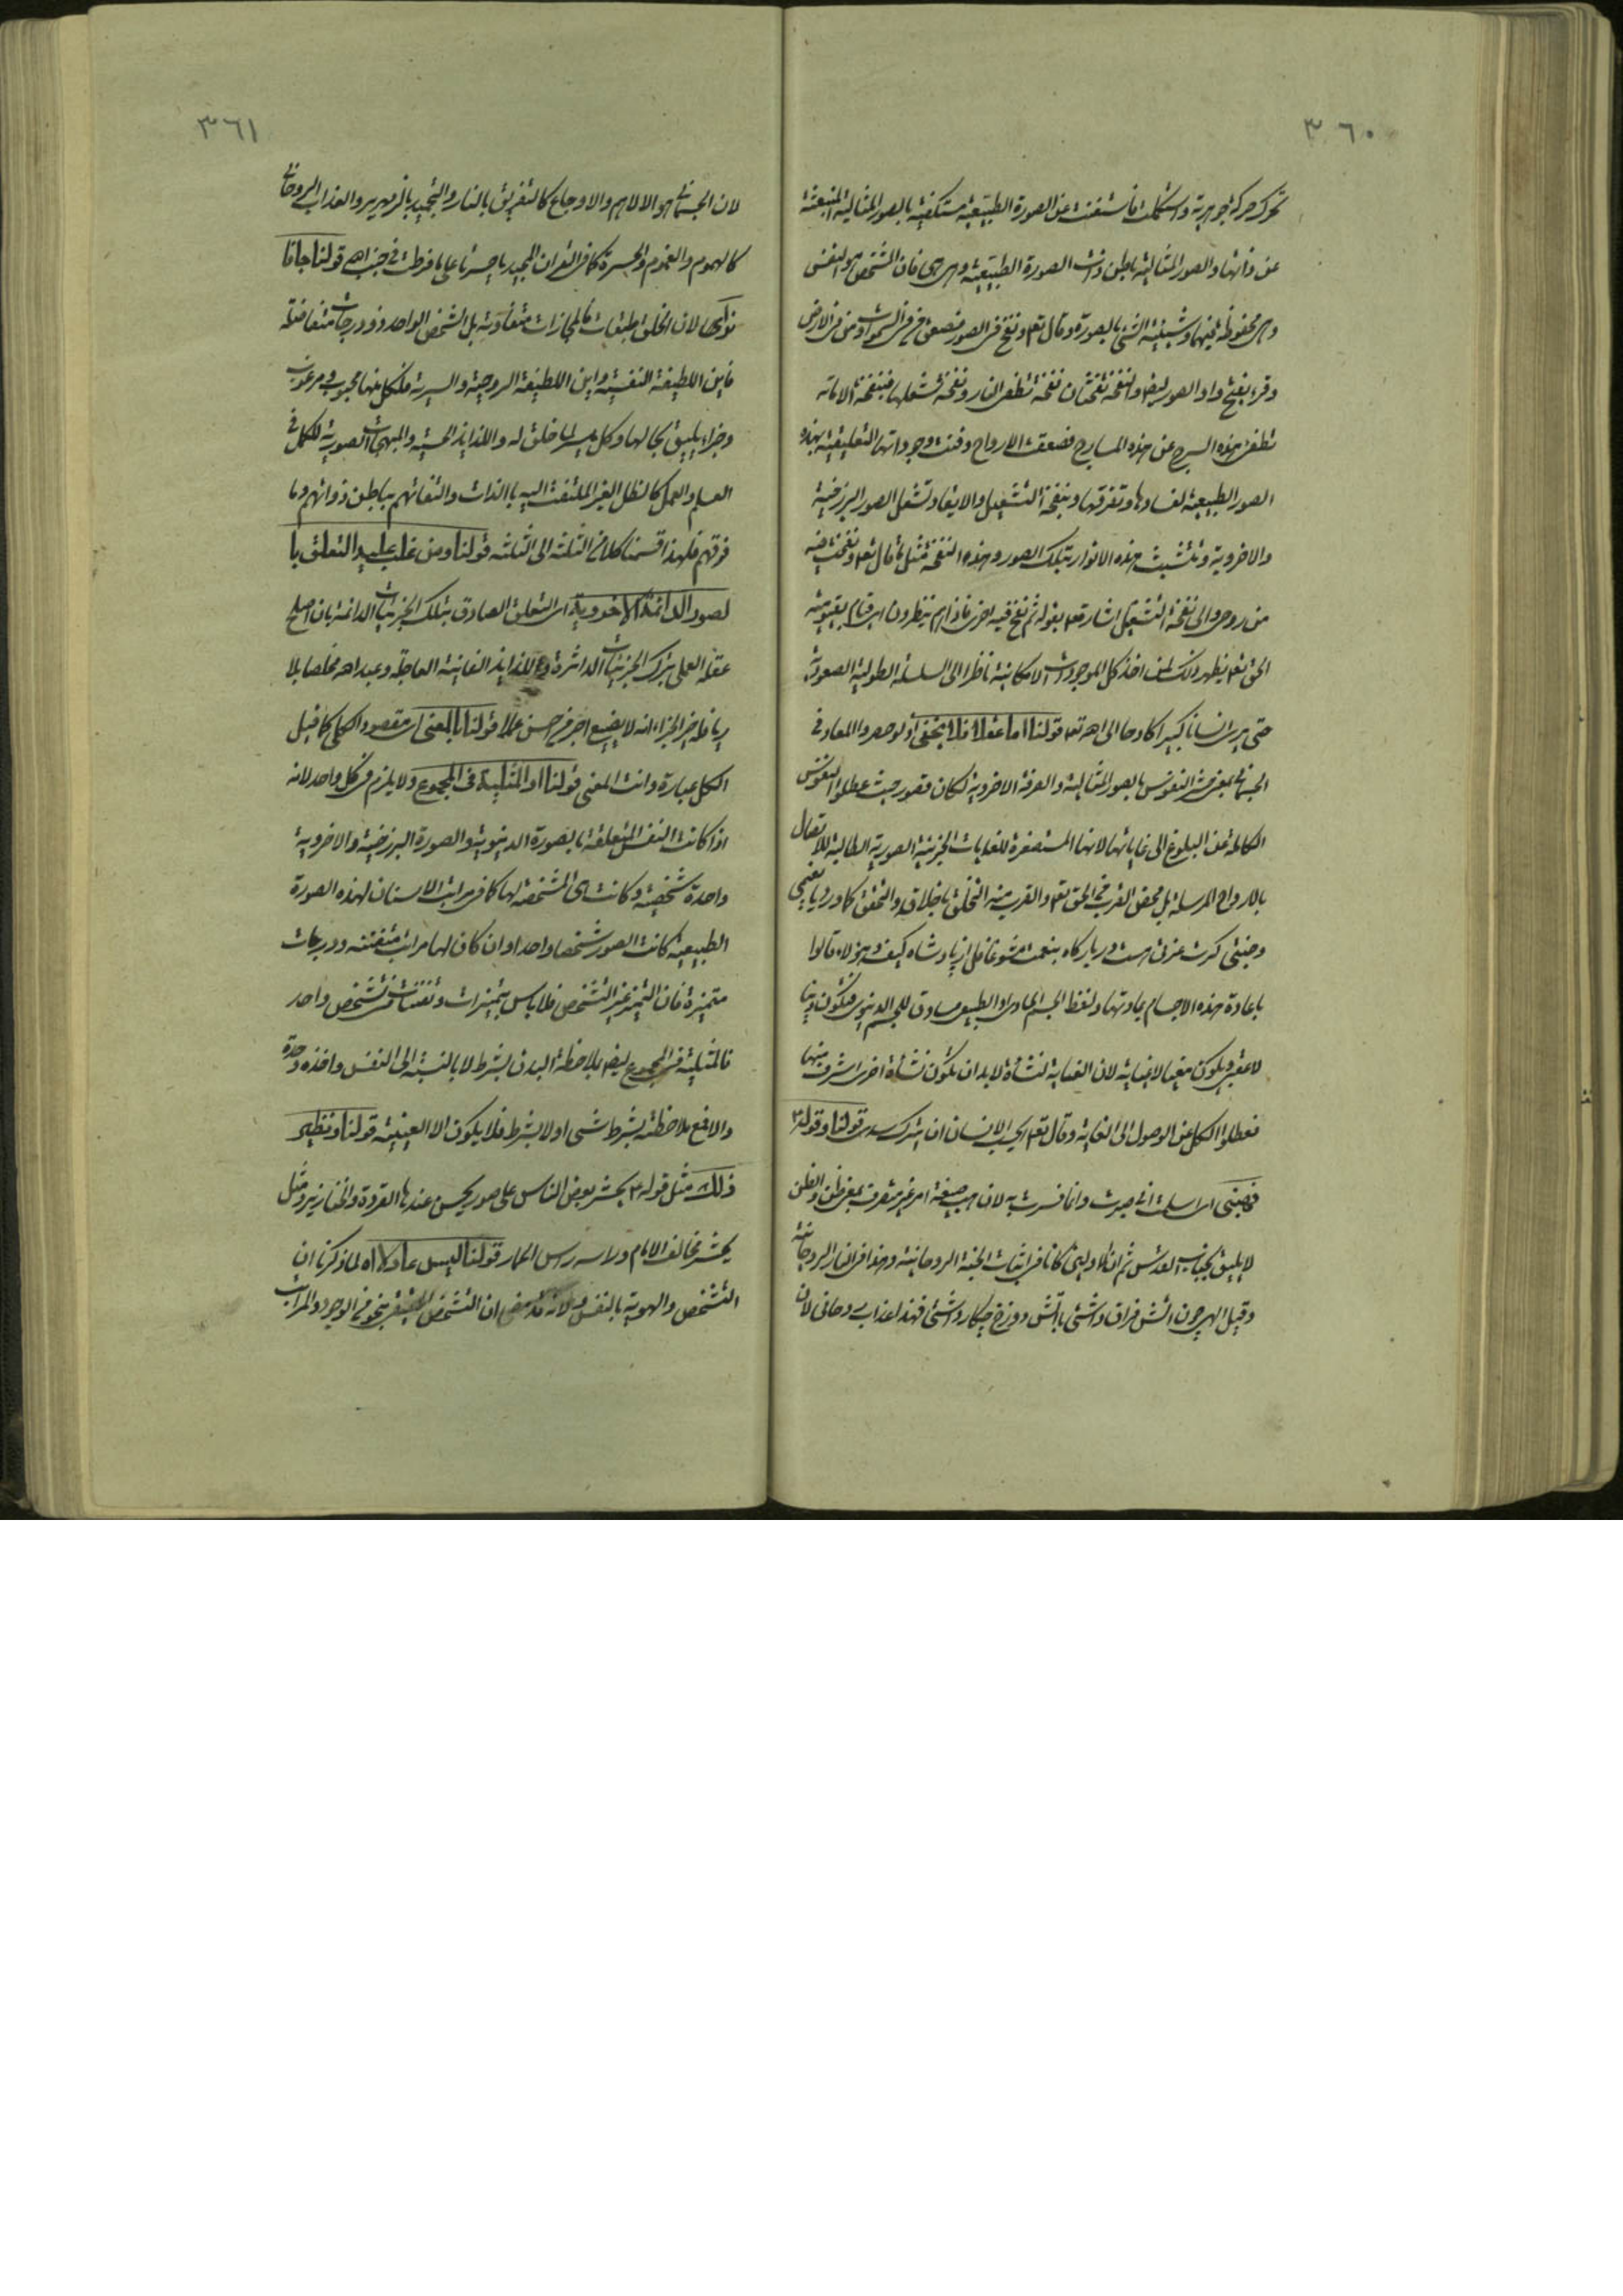 ٣٦٠
تحرك حركة جوهرية واستكملت فاستغنت عن الصورة الطبيعية مستكفية بالصور المثالية المنبعثة
عن ذاتها والصور المثالية باطن ذات الصورة الطبيعية وهى هى فان الشخص هو النفس
وهى محفوظة فيهما وشيئية الشئ بالصورة وقال تعالى ونفخ فى الصور فصعق من فى السموات ومن فى الارض
وقرء بفتح واو الصور ايضا والنفخة نفختان نفخة تطفئ النار ونفخة تشعلها فبنفخة الاماتة
تطفئ هذه السرج عن هذه المسارج فصعقت الارواح وفنيت وجوداتها التعليقية بهذه
الصور الطبيعية لفسادها وتفرقها وبنفخة التشعيل والايقاد تشعل الصور البرزخية
والاخروية وتتشبث هذه الانوار بتلك الصور وهذه النفخة مثل ما قال تعالى ونفخت فيه
من روحى والى نفخة التشعيل اشار تعالى بقوله ثم نفخ فيه اخرى فاذا هم قيام ينظرون اى قيام بقيومية
الحق تعالى يظهر ذلك لمن اخذ كل الموجودات الامكانية ناظرا الى السلسلة الطولية الصعودية
حتى يرى انسانا كبيرا كادحا الى اهه تعالى قولنا اما عقلا فلا يخفى اذ لو حصروا المعاد فى
الجسمانى بمعنى النفوس بالصور المثالية والصرفة الاخروية لكان قصور حيث عطلوا النفوس
الكاملة عن البلوغ الى غاياتها لانها المستصغرة للغايات الجزئية الصورية الطالبة للاتصال
بالارواح المرسلة بل محض القرب فى الحق تعالى والقرب منه التخلق باخلاقه والتحقق كما ورد يا نعيمى
وجنتى كرت عزتى هست در باركاه بنعمت مشو غافل از ياد شاه كيف وهؤلاء قالوا
باعادة هذه الاجسام بمادتها ولفظ الجسم المادى او الطبيعى مساوق للجسم الدنيوى فتكون دنيا
لا عقبى ويكون مغيا لا غاية لان الغاية لنشأة لا بد ان تكون نشأة اخرى اشرف منها
فعطلوا الكل عن الوصول الى الغاية وقال تعالى ايحسب الانسان ان يترك سدى قولنا وقوله
فهبنى اى اسلمت انى صبرت وانما فسرت به لان هب صيغة امر غير متصرف بمعنى ظن والظن
لا يليق بجناب القدس ثم ان الاوليين كانا فى اثبات الجنة الروحانية وهذا فى النار الروحانية
وقيل الهى چون آتش فراق داشتى باآتش دوزخ چكار داشتى فهذا عذاب روحانى لان
٣٦١
لان الجسمانى هو الالام والاوجاع كالتفريق بالنار والتجميد بالزمهرير والعذاب الروحانى
كالهموم والغموم والحسرة كما فى القران المجيد يا حسرتا على ما فرطت فى جنب اهه قولنا جافا
نواكها لان الخلق طبقات فالمجازات متفاوتة بل الشخص الواحد ذو درجات متفاضلة
فاين اللطيفة النفسية واين اللطيفة الروحية والسرية فلكل منها محبوب ومرغوب
وجزاء يليق بحالها وكل ميسر لما خلق له واللذايذ الحسية والمبهجات الصورية للكمل فى
العلم والعمل كالظل الغير الملتفت اليه بالذات والتفاتهم بباطن ذواتهم وما
فوقهم فلهذا قسمنا كلا من الثلثة الى الثلثة قولنا ومن غلب عليه التعلق با
لصور الدائمة الاخروية اى التعلق الصادق بتلك الجزئيات الدائمة بان اصلح
عقله العملى بترك الجزئيات الداثرة ودع اللذايذ الفانية العاجلة وعبد اهه مخلصا بلا
رياء فله خير الجزاء انه لا يضيع اجر من احسن عملا قولنا بالمعنى اى مقصود الكل كما قيل
الكل عبارة وانت المعنى قولنا او المثلية فى المجموع ولا يلزم فى كل واحد لانه
اذا كانت النفس المتعلقة بالصورة الدنيوية والصورة البرزخية والاخروية
واحدة شخصية وكانت هى المشخصة لها كما فى مراتب الاسنان لهذه الصورة
الطبيعية كانت الصور شخصا واحدا وان كان لها مراتب متفننة ودرجات
متميزة فان التميز غير التشخص فلا باس بتميزات وتفننات فى شخص واحد
فالمثلية فى المجموع ايضا بملاحظة البدن بشرط لا بالنسبة الى النفس واخذه وحدة
والا فمع ملاحظته بشرط شئ او لا بشرط فلا يكون الا العينية قولنا ونظير
ذلك مثل قوله ع يحشر بعض الناس على صور يحسن عندها القردة والخنازير ومثل
يحشر مخالف الامام وراسه راس الحمار قولنا ليس عادلا اه لما ذكرنا ان
التشخص والهوية بالنفس ولانه قد مضى ان التشخص الحقيقى بنحو من الوجود والمراتب